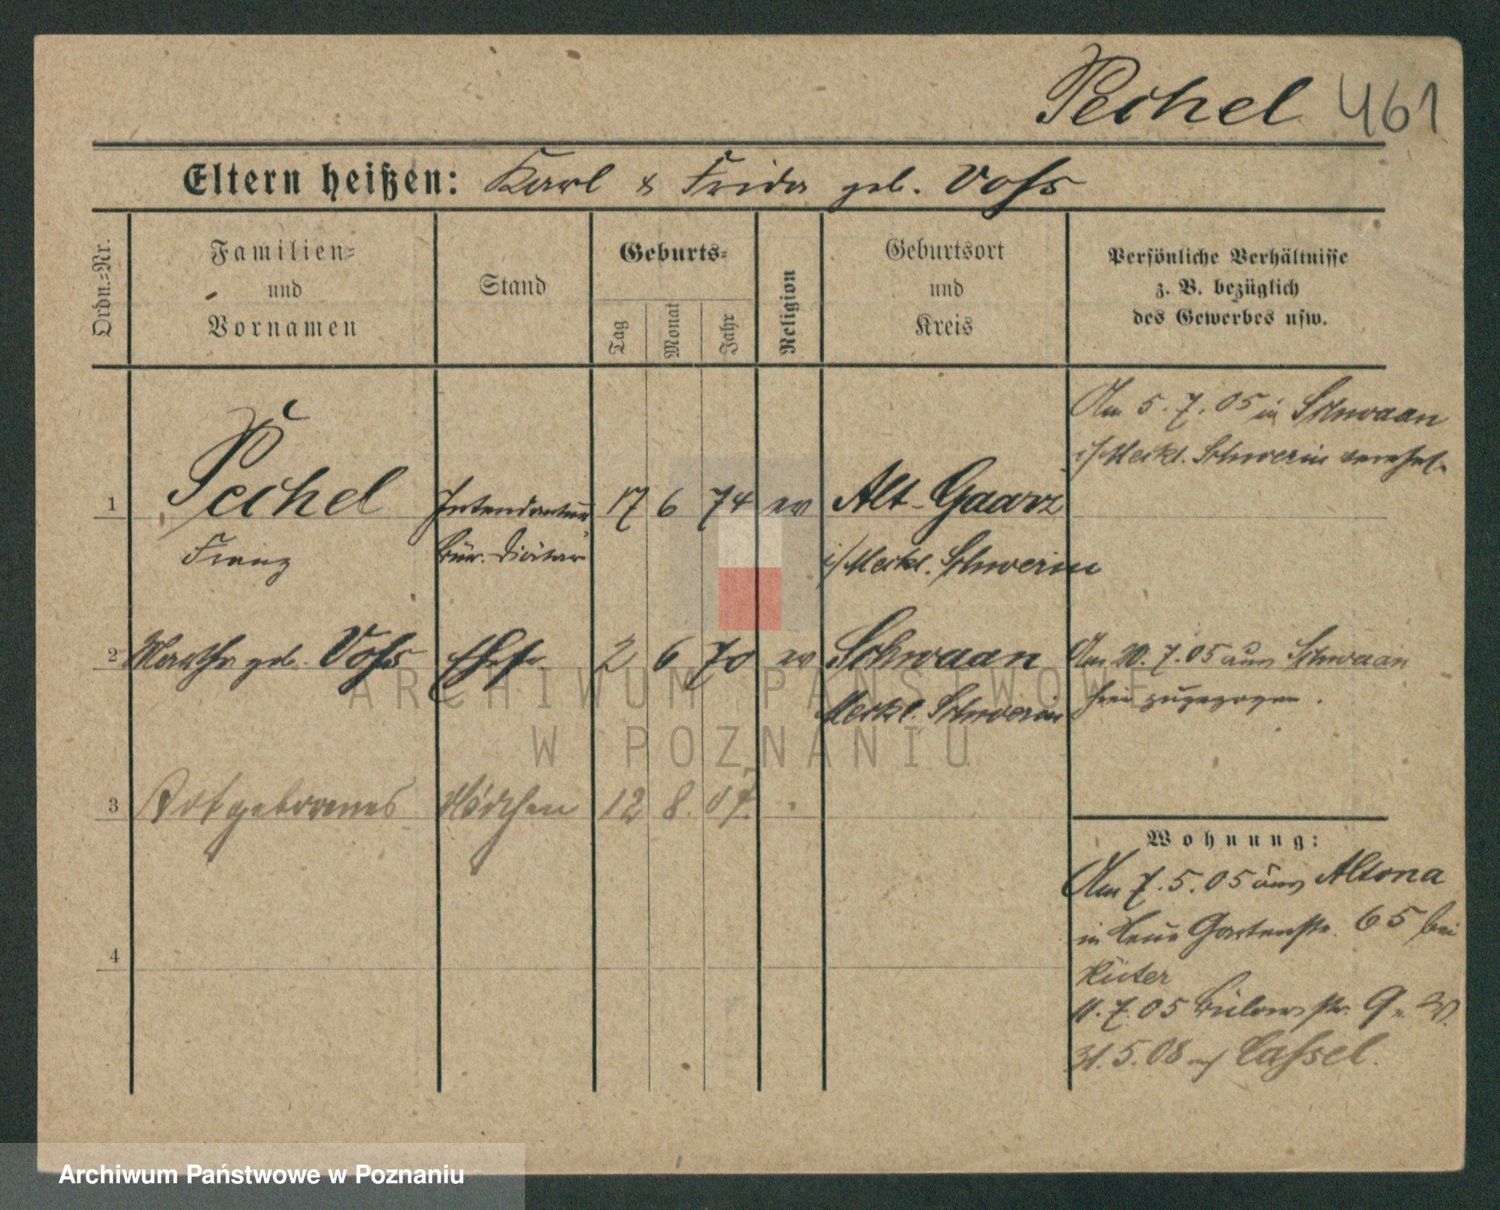 Pechel 461
Eltern heißen: Karl & Frida geb. Voss
Ordn.-Nr.
Familien-
und
Vornamen
Stand
Geburts-
Tag
Monat
Jahr
Religion
Geburtsort
und
Kreis
Persönliche Verhältnisse
z. B. bezüglich
des Gewerbes usw.
Am 5.7.05 in Schwaan
i/Meckl. Schwerin verehel.
1 Pechel Intendantur 17 6 74 ev Alt-Gaarz
Franz Bür. Diätar i/Meckl. Schwerin
2 Martha geb. Voss Ehefr. 2 6 70 ev Schwaan
Meckl. Schwerin
Am 20.7.05 aus Schwaan
hier zugezogen.
3 Totgeborenes Mädchen 12 8. 07.
4
Wohnung:
Am 7.5.05 aus Altona
in Neue Gartenstr. 65 bei
Rüter
11.7.05 Bülowstr. 9
31.5.08 Cassel.
ARCHIWUM PAŃSTWOWE
W POZNANIU
Archiwum Państwowe w Poznaniu